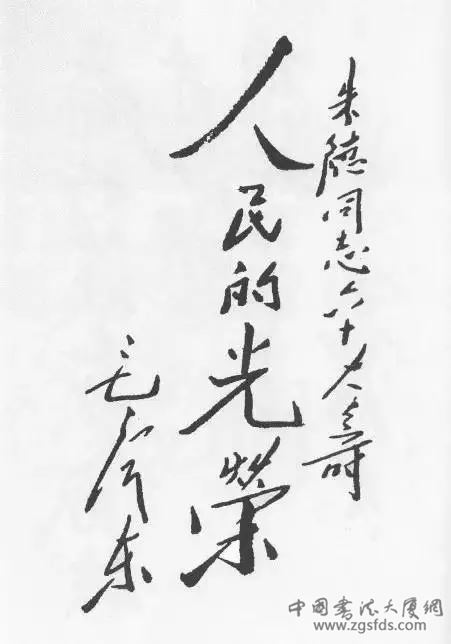 朱德同志六十大寿
人民的光榮
毛泽东
中国书法大厦網
www.zgsfds.com